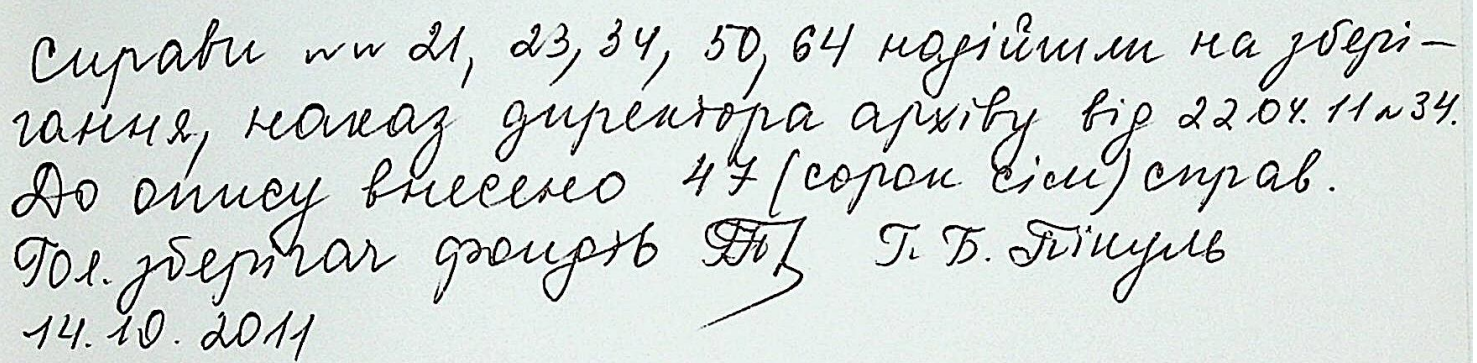 Справи №№ 21, 23, 34, 50, 64 надійшли на збері-
гання, наказ директора архіву від 22.04.11 № 34.
До опису внесено 47 (сорок сім) справ.
Гол. зберігач фондів Г. Б. Пікуль
14.10.2011